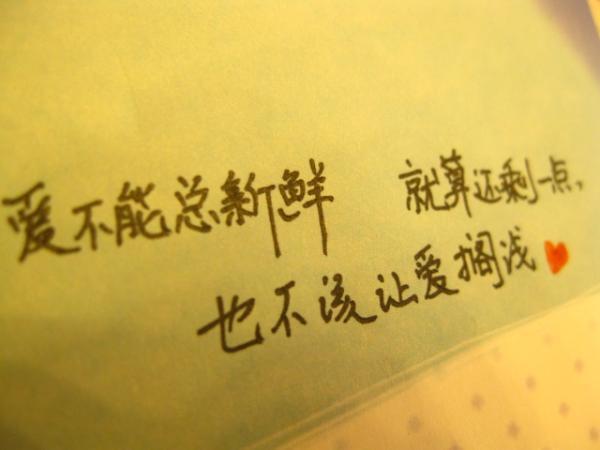 爱不能总新鲜 就算还剩一点,
也不该让爱搁浅